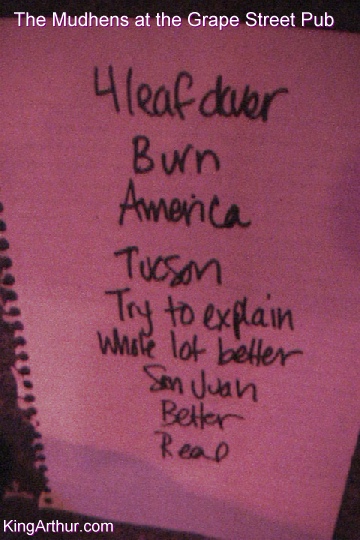 The Mudhens at the Grape Street Pub
4 leaf clover
Burn
America
Tucson
Try to explain
Whole lot better
San Juan
Better
Read
KingArthur.com